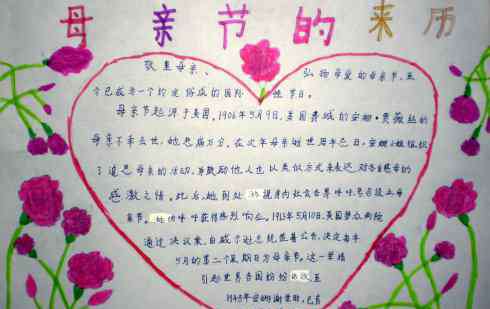 母亲节的来历
敬重母亲、弘扬母爱的母亲节,至
今已成为一个约定俗成的国际性节日。
母亲节起源于美国。1906年5月9日,美国费城的安娜·贾薇丝的
母亲不幸去世,她悲痛万分。在次年母亲逝世周年忌日,安娜小姐组织
了追思母亲的活动,并鼓励他人也以类似方式来表达对各自慈母的
感激之情。此后,她到处 视并向社会各界呼吁号召设立母
亲节。她的呼吁获得热烈响应。1913年5月10日,美国参众两院
通过决议案,由威尔逊总统签署公告,决定每年
5月的第二个星期日为母亲节。这一举措
引起世界各国纷纷 至
1948年安娜谢世时,已有